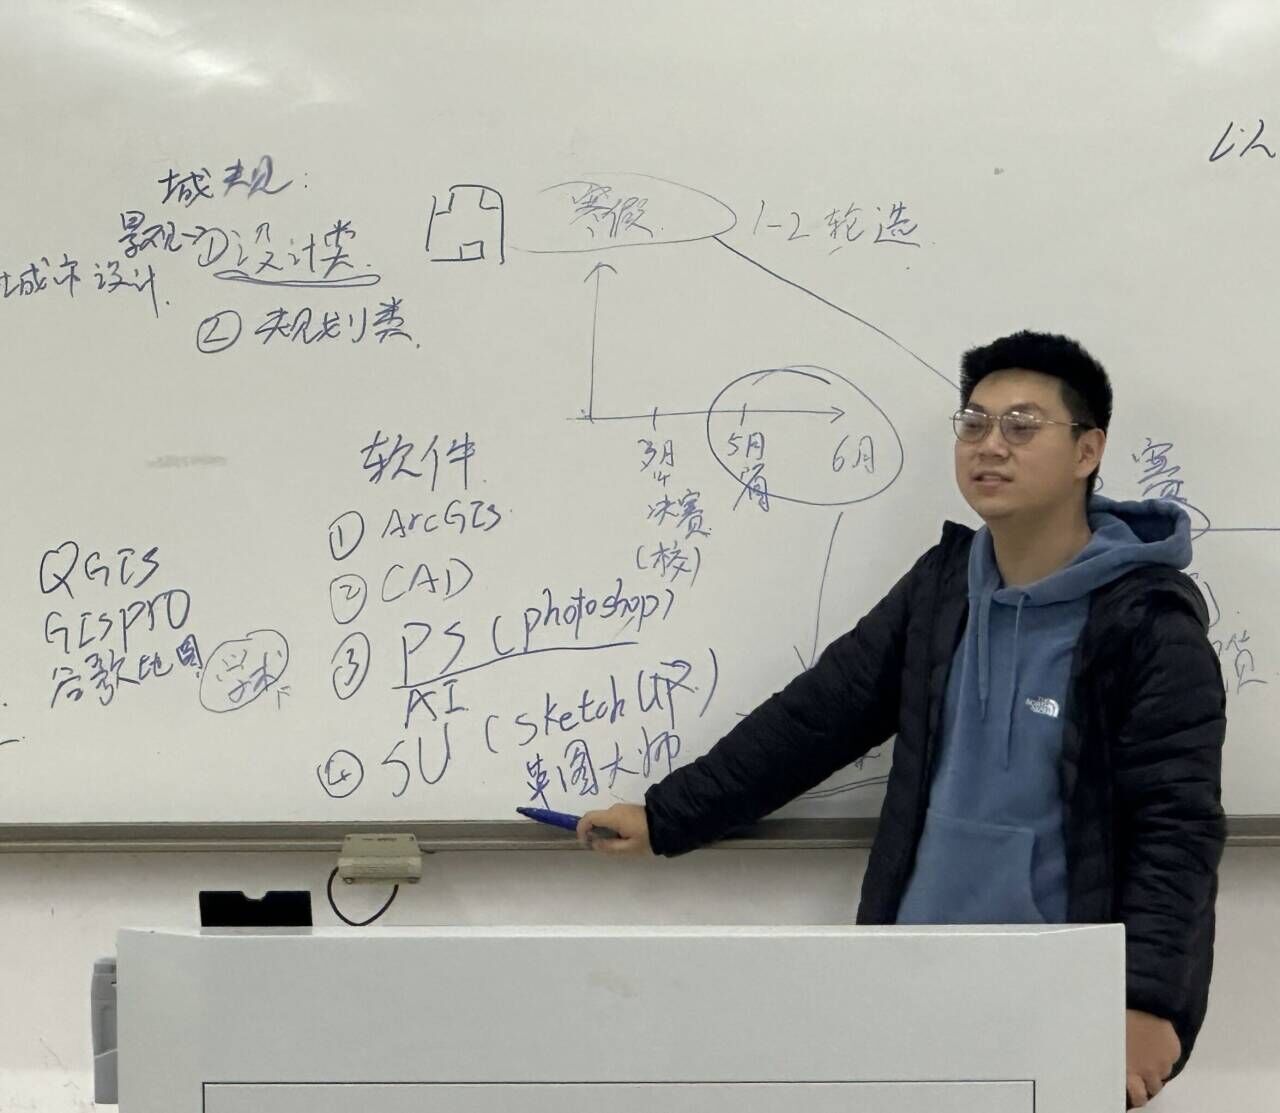 城规:
景观→①设计类.
城市设计.
②规划类.
寒假.
1-2轮选
3月
决赛
(校)
5月
6月
软件
① ArcGIS
② CAD
③ PS (photoshop)
AI
④ SU (sketch UP)
草图大师
QGIS
GISPro
谷歌地图
学术
赛
THE
NORTH